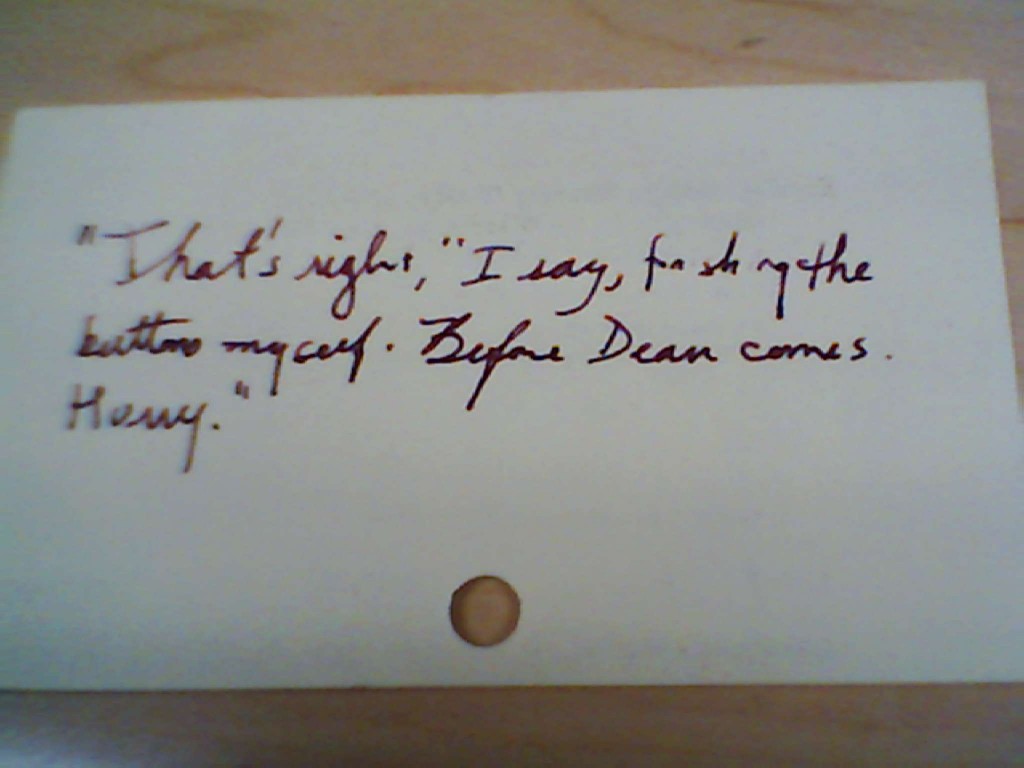 "That's right," I say, pushing the
button myself. Before Dean comes.
Hurry."